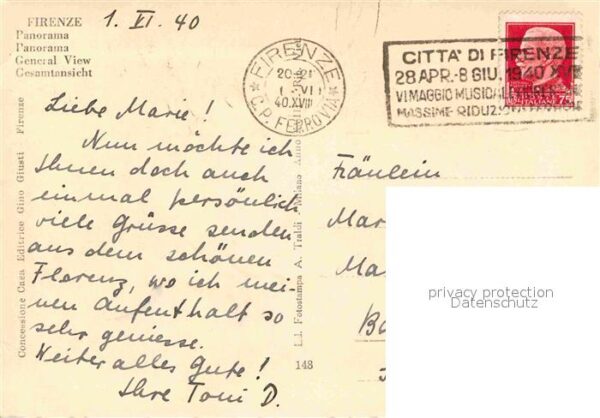 FIRENZE
Panorama
Panorama
General View
Gesamtansicht
1. VI. 40
FIRENZE
20-21
1 VI
40.XVIII
C.P. FERROVIA
CITTA' DI FIRENZE
28 APR.-8 GIU. 1940 XVIII
VI MAGGIO MUSICALE
MASSIME RIDUZ.
Liebe Marie!
Nun möchte ich
Ihnen doch auch
einmal persönlich
viele Grüsse senden
aus dem schönen
Florenz, wo ich mei-
nen Aufenthalt so
sehr geniesse.
Weiter alles Gute!
Ihre Toni D.
Fräulein
Mar
Ma
Ba
privacy protection
Datenschutz
Concessione Casa Editrice Gino Giusti - Firenze
L.I. Fotostampa A. Traldi - Milano Anno
148